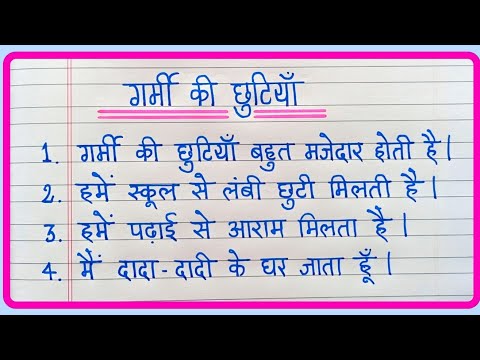 गर्मी की छुटियाँ
1. गर्मी की छुटियाँ बहुत मजेदार होती है।
2. हमें स्कूल से लंबी छुटी मिलती है।
3. हमें पढ़ाई से आराम मिलता है।
4. मैं दादा-दादी के घर जाता हूँ।